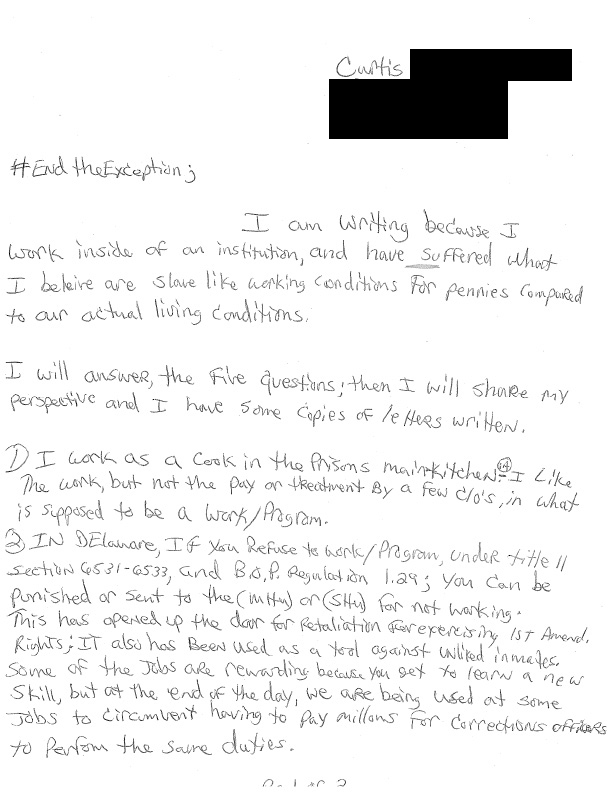 Curtis
#End theException;
I am writing because I
work inside of an institution, and have suffered what
I beleive are slave like working conditions for pennies compared
to our actual living conditions.
I will answer, the five questions; then I will share my
perspective and I have some copies of letters written.
1) I work as a cook in the Prisons mainkitchen. I Like
The work, but not the pay or treatment By a few c/o's, in what
is supposed to be a work/Program.
2) IN DElaware, If you Refuse to work/Program, under title 11
section 6531-6533, and B.O.P. Regulation 1.29; you can be
punished or sent to the (MHU) or (SHU) for not working.
This has opened up the door for Retaliation for exercising 1st Amend.
Rights; IT also has Been used as a tool against unliked inmates.
Some of the Jobs are rewarding because you get to learn a new
skill, but at the end of the day, we are being used at some
Jobs to circumvent having to pay millons for corrections officers
to perfom the same duties.